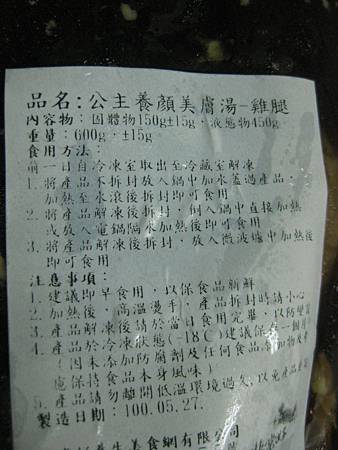 品名:公主養顏美膚湯-雞腿
內容物:固體物150g±15g,液態物450g
重量:600g,±15g
食用方法:
前一日自冷凍室取出至冷藏室解凍
1. 將產品不拆封放入鍋中加水蓋過產品,
加熱至水滾後拆封即可食用
2. 將產品解凍後拆封,倒入鍋中直接加熱
或放入電鍋隔水加熱後即可食用
3. 將產品解凍後拆封,放入微波爐中加熱後
即可食用
注意事項:
1. 建議即早食用,以保食品新鮮
2. 加熱後,高溫燙手,產品拆封時請小心
3. 產品解凍後請於當日食用完畢,以防變
4. 產品於冷凍狀態(-18C)建議保存一個月
(因未添加防腐劑及任何食品添加物及
慮保持食品本身風味)
5. 產品請勿離開低溫環境過久,以免產品
製造日期:100.05.27.
養生美食網有限公司